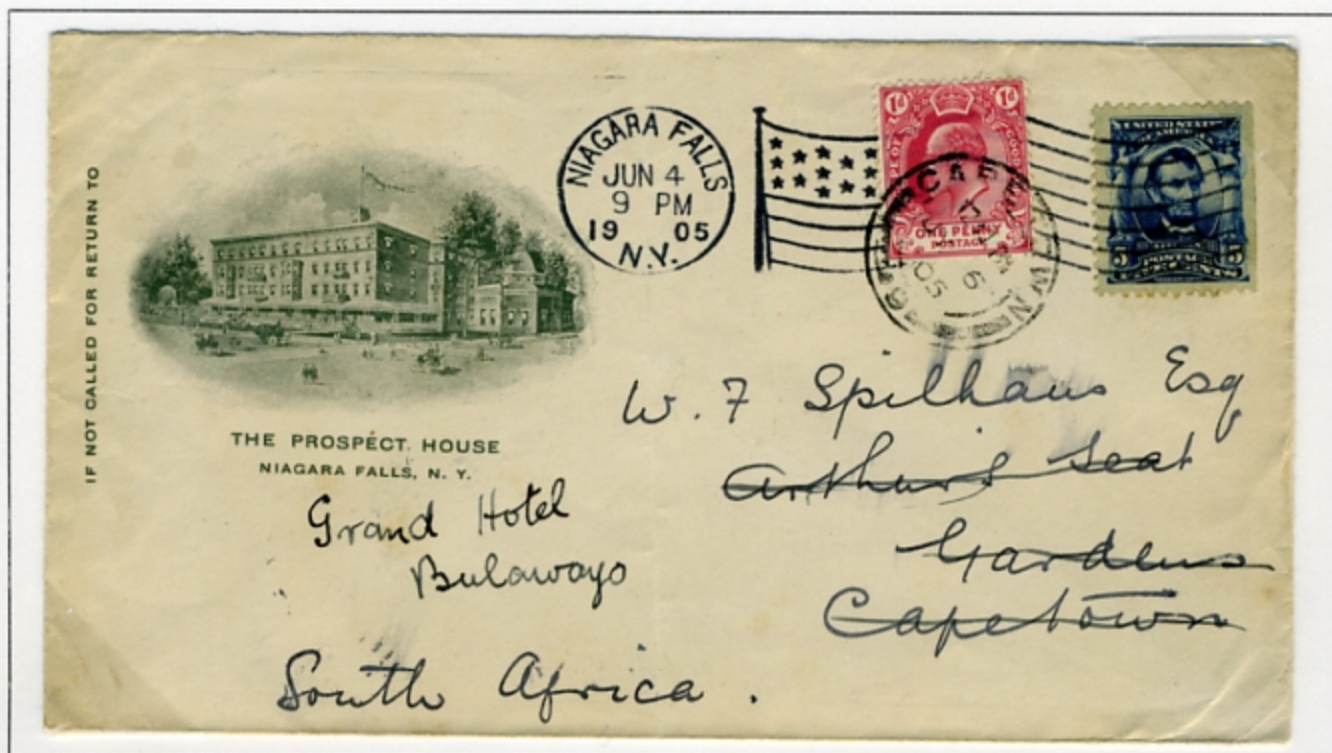 IF NOT CALLED FOR RETURN TO
THE PROSPECT HOUSE
NIAGARA FALLS, N. Y.
NIAGARA FALLS
JUN 4
9 PM
19 05
N.Y.
1d 1d
PE OF GOOD
ONE PENNY
POSTAGE
UNITED STATES
OF AMERICA
5 POSTAGE 5
W. F Spilhaus Esq
Arthur's Seat
Gardens
Capetown
Grand Hotel
Bulawayo
South Africa.